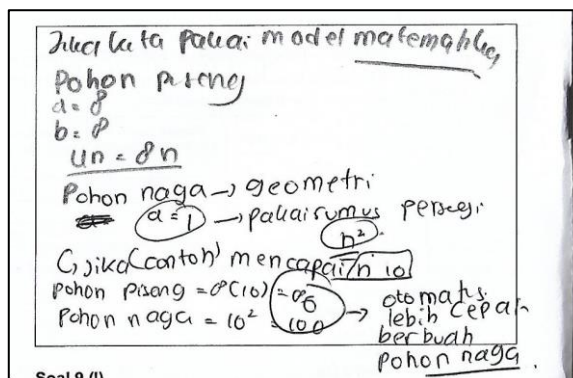 Jika kita pakai model matematika
Pohon pisang
a = 8
b = 8
Un = 8n
Pohon naga → geometri
a = 1 → pakai rumus persegi
n².
C, jika (contoh) mencapai n 10
pohon pisang = 8(10) = 80
Pohon naga = 10² = 100 → otomatis
lebih cepat
berbuah
pohon naga.
Soal 9 (I)